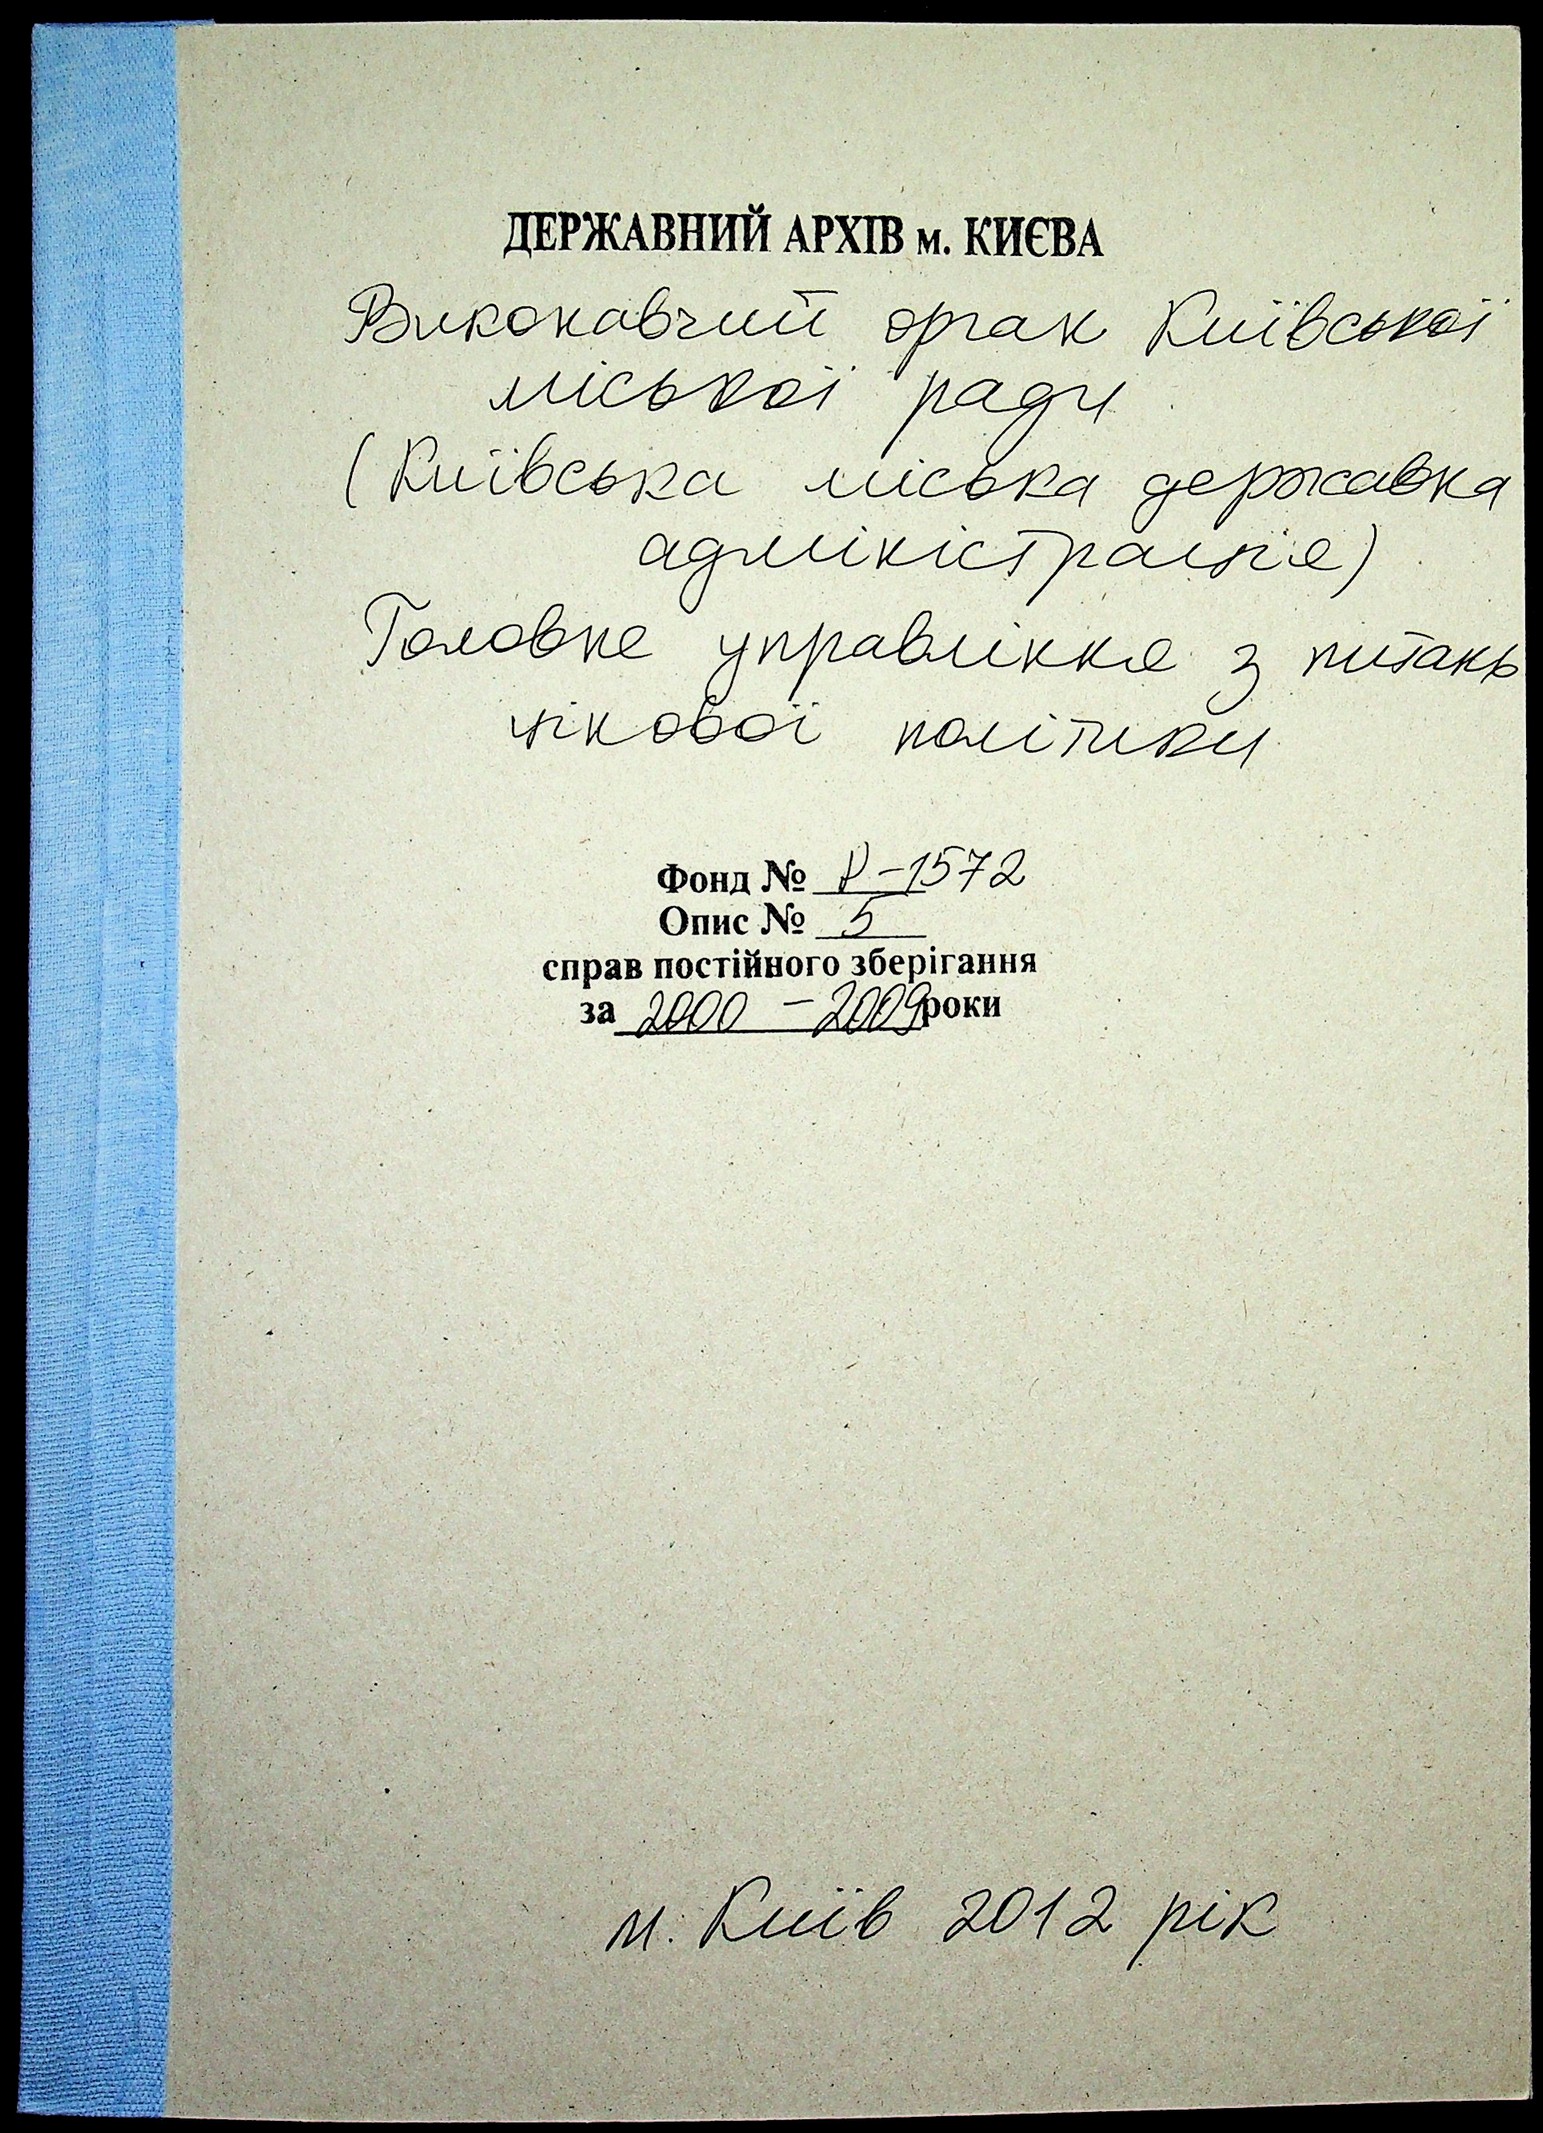 ДЕРЖАВНИЙ АРХІВ м. КИЄВА
Виконавчий орган Київської
міської ради
(Київська міська державна
адміністрація)
Головне управління з питань
цінової політики
Фонд № Р-1572
Опис № 5
справ постійного зберігання
за 2000 – 2009 роки
м. Київ 2012 рік